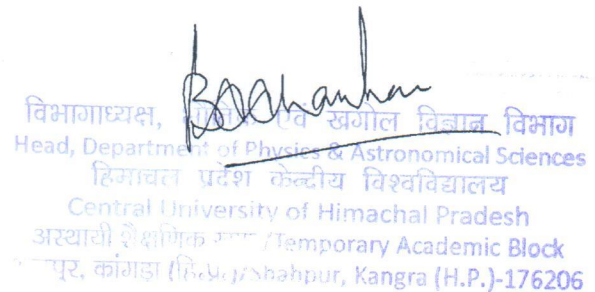 विभागाध्यक्ष, एवं खगोल विज्ञान विभाग
Head, Department of Physics & Astronomical Sciences
हिमाचल प्रदेश केन्द्रीय विश्वविद्यालय
Central University of Himachal Pradesh
अस्थायी शैक्षणिक /Temporary Academic Block
कांगड़ा (हि.प्र.)/Shahpur, Kangra (H.P.)-176206